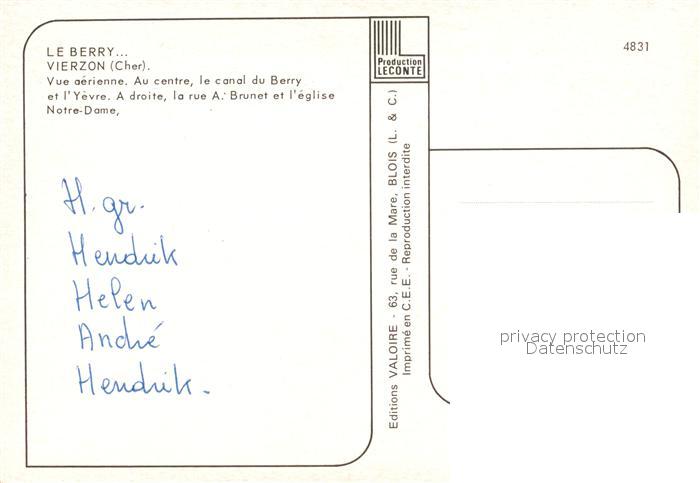 LE BERRY...
VIERZON (Cher).
Vue aérienne. Au centre, le canal du Berry
et l'Yèvre. A droite, la rue A. Brunet et l'église
Notre-Dame,
H. gr.
Hendrik
Helen
André
Hendrik.
Production
LECONTE
Editions VALOIRE - 63, rue de la Mare, BLOIS (L. & C.)
Imprimé en C.E.E. - Reproduction interdite
4831
privacy protection
Datenschutz